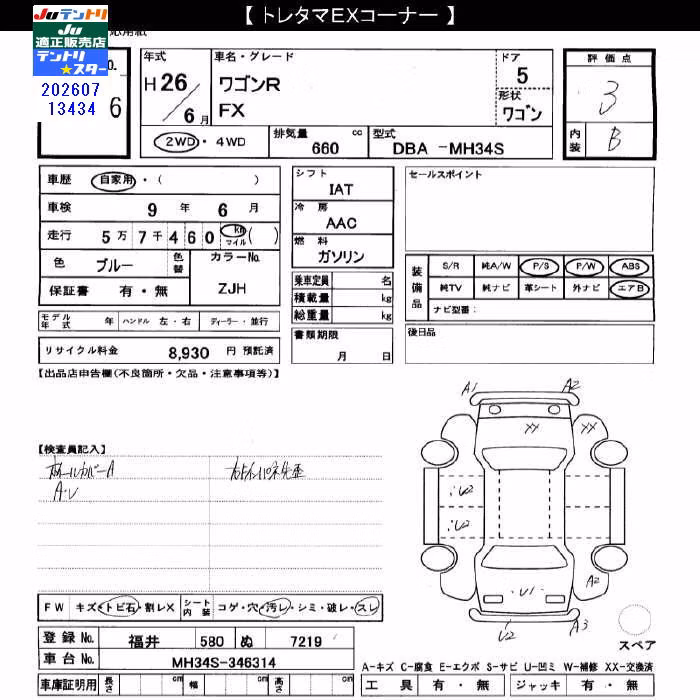 【 トレタマEXコーナー 】
Juテントリ
Ju
適正販売店
テントリ
★スター
応用紙
No.
202607
13434
6
年式
H 26 / 6 月
車名・グレード
ワゴンR
FX
ドア
5
形状
ワゴン
評価点
3
内装
B
2WD・4WD
排気量 cc
660
型式
DBA -MH34S
車歴 自家用・( )
車検 9 年 6 月
走行 5万 7千 4 6 0 km マイル ( )
色 ブルー 色替
カラーNo.
ZJH
保証書 有・無
モデル年式 年 ハンドル 左・右 ディーラー・並行
リサイクル料金 8,930 円 預託済
シフト
IAT
冷房
AAC
燃料
ガソリン
乗車定員 名
積載量 kg
総重量 kg
書類期限
月 日
セールスポイント
装備品
S/R 純A/W P/S P/W ABS
純TV 純ナビ 革シート 外ナビ エアB
ナビ型番:
後日品
【出品店申告欄(不良箇所・欠品・注意事項等)】
【検査員記入】
A・U
A1
A2
XX
XX
U2
U2
A2
U1
U2
A3
スペア
FW キズ・トビ石・割レX
シート内装 コゲ・穴・汚レ・シミ・破レ・スレ
登録 No. 福井 580 ぬ 7219
車台 No. MH34S-346314
車庫証明用 長さ cm 幅 cm 高さ cm
A-キズ C-腐食 E-エクボ S-サビ U-凹ミ W-補修 XX-交換済
工具 有・無 ジャッキ 有・無